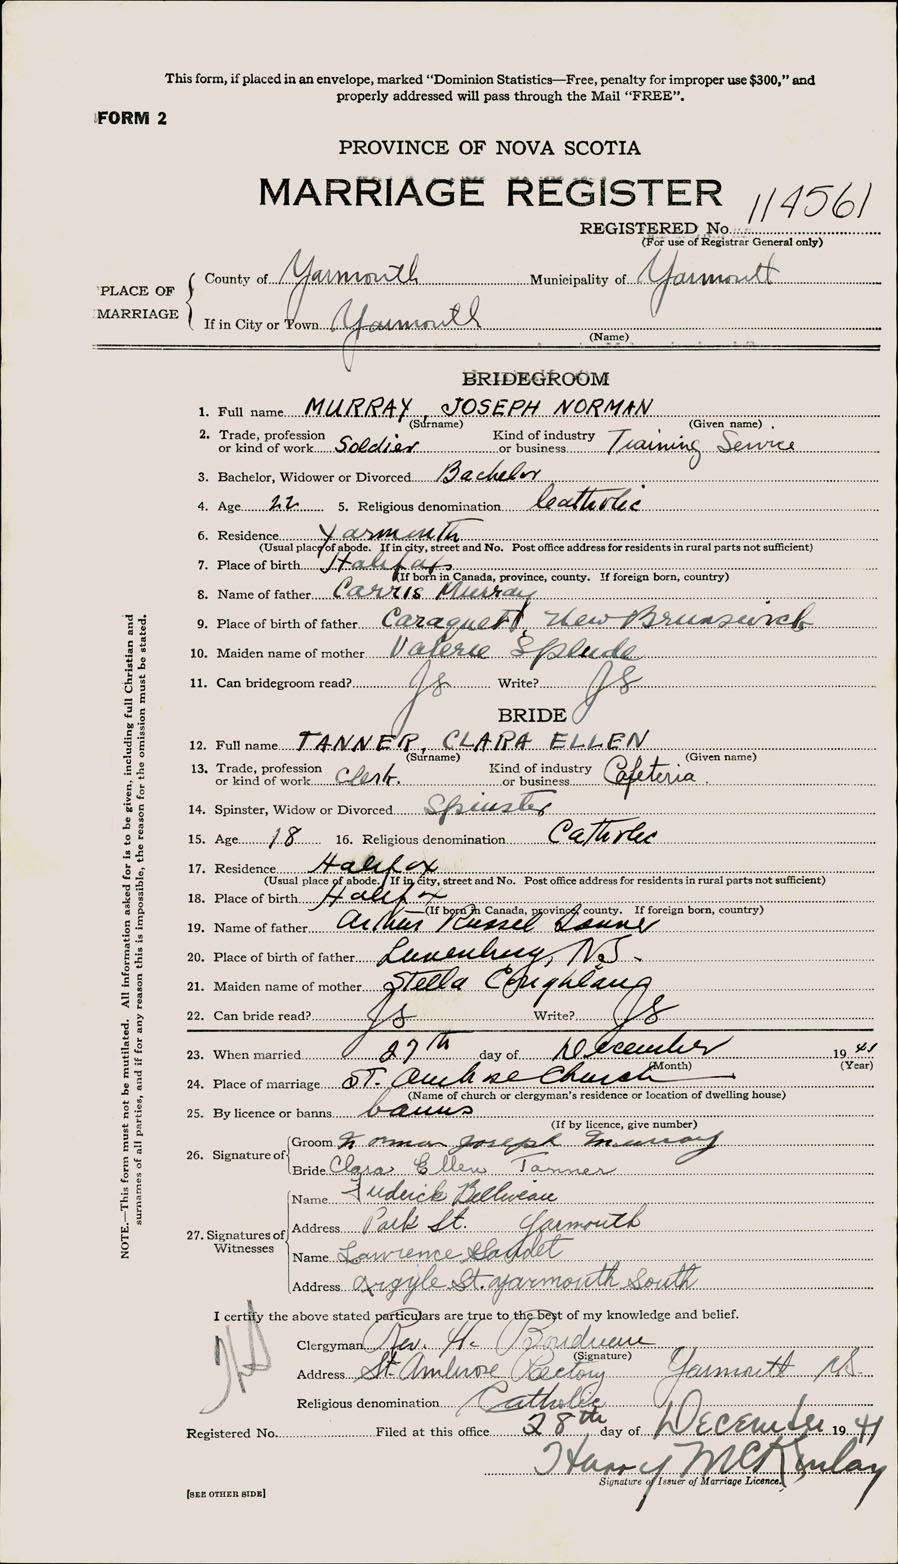 This form, if placed in an envelope, marked “Dominion Statistics—Free, penalty for improper use $300,” and
properly addressed will pass through the Mail “FREE”.
FORM 2
PROVINCE OF NOVA SCOTIA
MARRIAGE REGISTER
REGISTERED No. 114561
(For use of Registrar General only)
PLACE OF MARRIAGE
County of Yarmouth Municipality of Yarmouth
If in City or Town Yarmouth
(Name)
BRIDEGROOM
1. Full name MURRAY, JOSEPH NORMAN
(Surname) (Given name)
2. Trade, profession or kind of work Soldier Kind of industry or business Training Service
3. Bachelor, Widower or Divorced Bachelor
4. Age 22 5. Religious denomination Catholic
6. Residence Yarmouth
(Usual place of abode. If in city, street and No. Post office address for residents in rural parts not sufficient)
7. Place of birth Halifax
(If born in Canada, province, county. If foreign born, country)
8. Name of father Carris Murray
9. Place of birth of father Caraquett, New Brunswick
10. Maiden name of mother Valerie
11. Can bridegroom read? Write?
BRIDE
12. Full name TANNER, CLARA ELLEN
(Surname) (Given name)
13. Trade, profession or kind of work Clerk. Kind of industry or business Cafeteria.
14. Spinster, Widow or Divorced Spinster
15. Age 18 16. Religious denomination Catholic
17. Residence Halifax
(Usual place of abode. If in city, street and No. Post office address for residents in rural parts not sufficient)
18. Place of birth Halifax
(If born in Canada, province, county. If foreign born, country)
19. Name of father Arthur Russel Tanner
20. Place of birth of father Lunenburg, N.S.
21. Maiden name of mother Stella
22. Can bride read? Write?
23. When married 27th day of December 1941
(Month) (Year)
24. Place of marriage St. Ambrose Church
(Name of church or clergyman’s residence or location of dwelling house)
25. By licence or banns banns
(If by licence, give number)
26. Signature of
Groom Norman Joseph Murray
Bride Clara Ellen Tanner
27. Signatures of Witnesses
Name Frederick Belliveau
Address Park St. Yarmouth
Name Lawrence
Address Argyle St. Yarmouth South
I certify the above stated particulars are true to the best of my knowledge and belief.
Clergyman Rev. H. Boudreau
(Signature)
Address St. Ambrose Rectory Yarmouth N.S.
Religious denomination Catholic
Registered No. Filed at this office 28th day of December 1941
Harry McKinlay
Signature of Issuer of Marriage Licence.
[SEE OTHER SIDE]
NOTE.—This form must not be mutilated. All information asked for is to be given, including full Christian and
surnames of all parties, and if for any reason this is impossible, the reason for the omission must be stated.